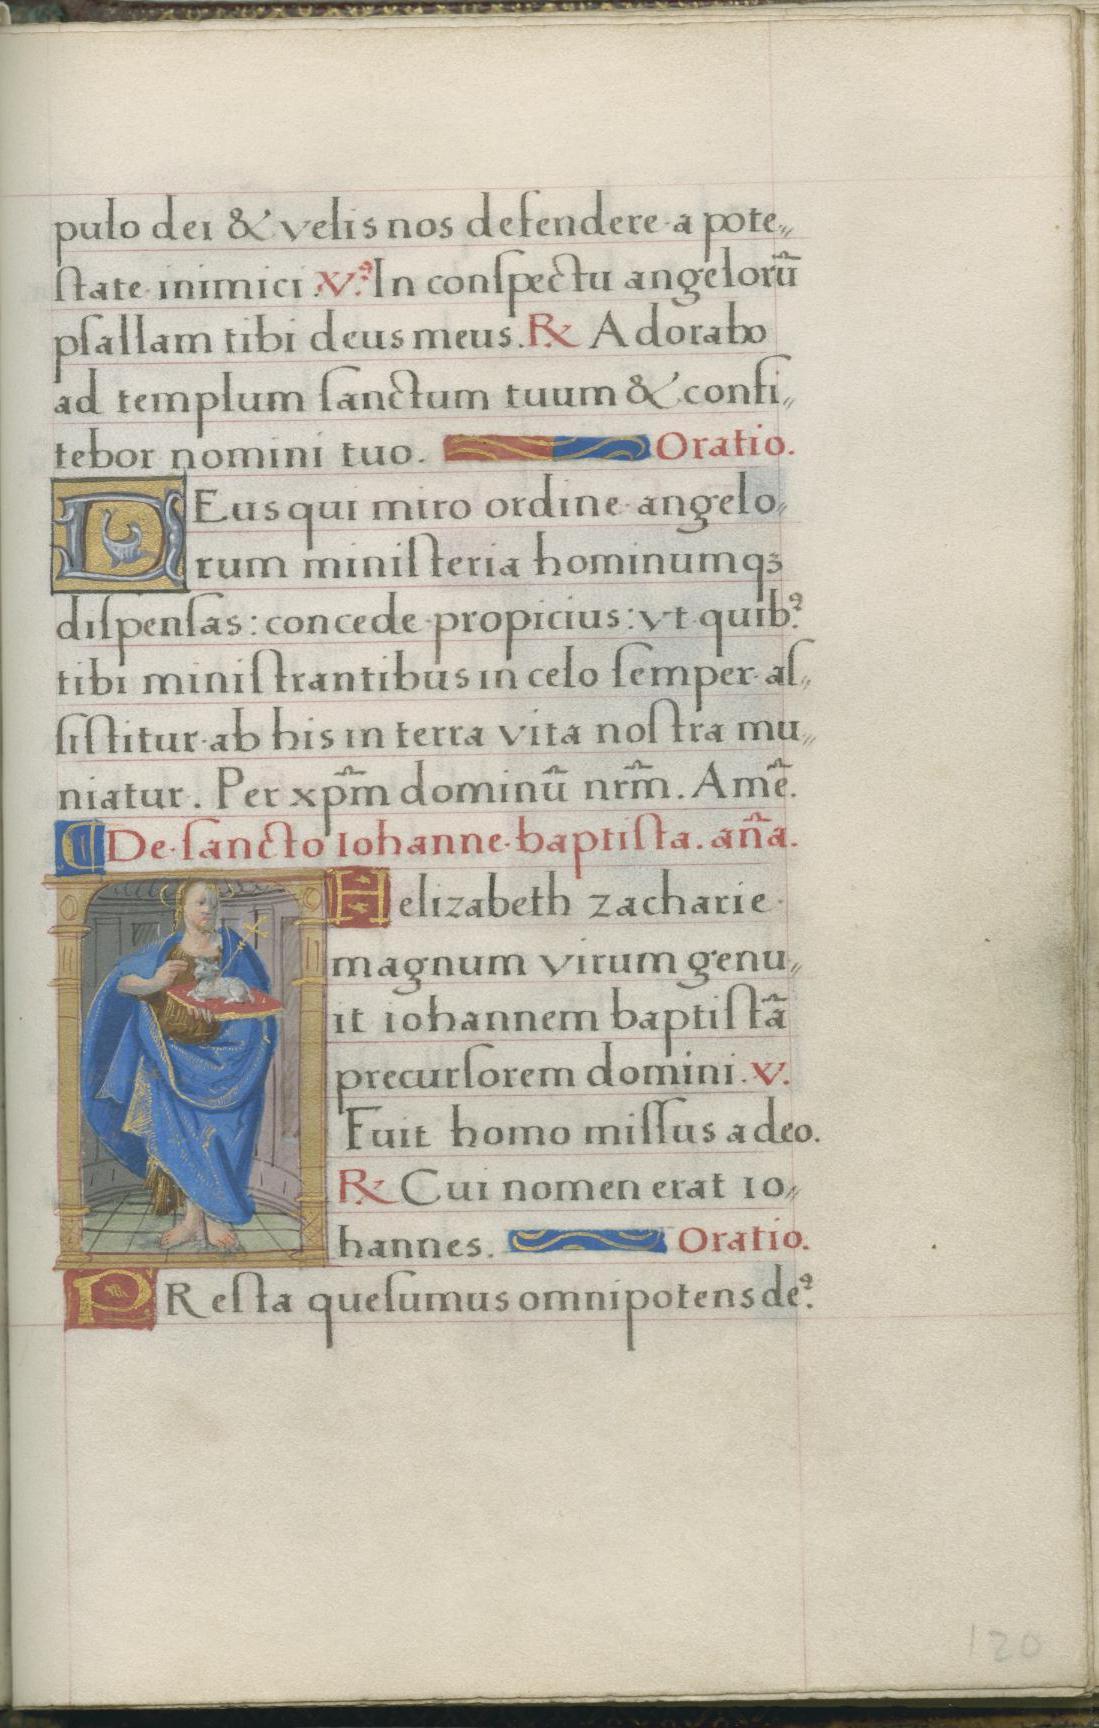 pulo dei & velis nos defendere a pote„
ſtate inimici. V.ꝰ In conſpectu angelorũ
pſallam tibi deus meus. ℞ Adorabo
ad templum ſanctum tuum & confi„
tebor nomini tuo. Oratio.
DEus qui miro ordine angelo„
rum miniſteria hominumqꝫ
diſpenſas: concede propicius: vt quibꝰ.
tibi miniſtrantibus in celo ſemper aſ„
ſiſtitur ab his in terra vita noſtra mu„
niatur. Per xp̃m dominũ nrm̃. Amẽ.
De ſancto Iohanne baptiſta. añа.
Helizabeth zacharie
magnum virum genu„
it iohannem baptiſtã
precurſorem domini. v.
Fuit homo miſſus a deo.
℞ Cui nomen erat io„
hannes. Oratio.
PReſta queſumus omnipotens deꝰ.
120